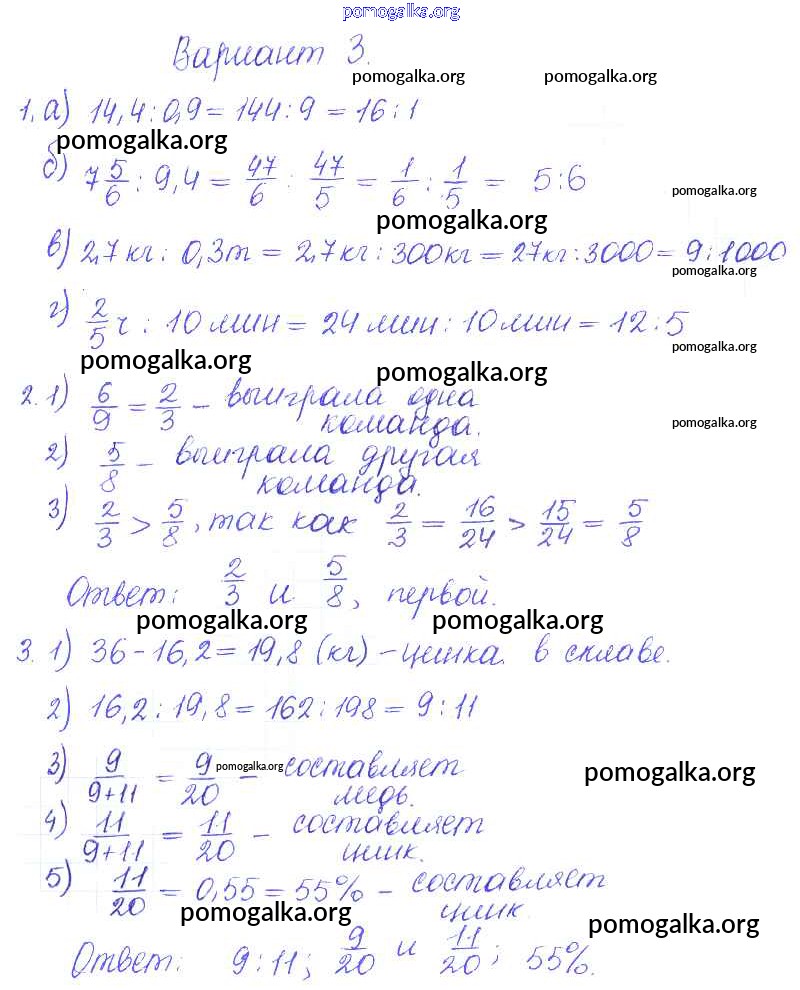 pomogalka.org
Вариант 3.
pomogalka.org pomogalka.org
1. а) 14,4 : 0,9 = 144 : 9 = 16 : 1
pomogalka.org
б) 7 5/6 : 9,4 = 47/6 : 47/5 = 1/6 : 1/5 = 5 : 6
pomogalka.org
pomogalka.org
в) 2,7 кг : 0,3 т = 2,7 кг : 300 кг = 27 кг : 3000 = 9 : 1000
pomogalka.org
г) 2/5 ч : 10 мин = 24 мин : 10 мин = 12 : 5
pomogalka.org
pomogalka.org pomogalka.org
2. 1) 6/9 = 2/3 – выиграла одна
команда.
pomogalka.org
2) 5/8 – выиграла другая
команда.
3) 2/3 > 5/8, так как 2/3 = 16/24 > 15/24 = 5/8
Ответ: 2/3 и 5/8, первой.
pomogalka.org pomogalka.org
3. 1) 36 - 16,2 = 19,8 (кг) – цинка в сплаве.
2) 16,2 : 19,8 = 162 : 198 = 9 : 11
3) 9/(9+11) = 9/20 – составляет
медь.
pomogalka.org pomogalka.org
4) 11/(9+11) = 11/20 – составляет
цинк.
5) 11/20 = 0,55 = 55% – составляет
цинк
pomogalka.org pomogalka.org
Ответ: 9 : 11; 9/20 и 11/20; 55%.